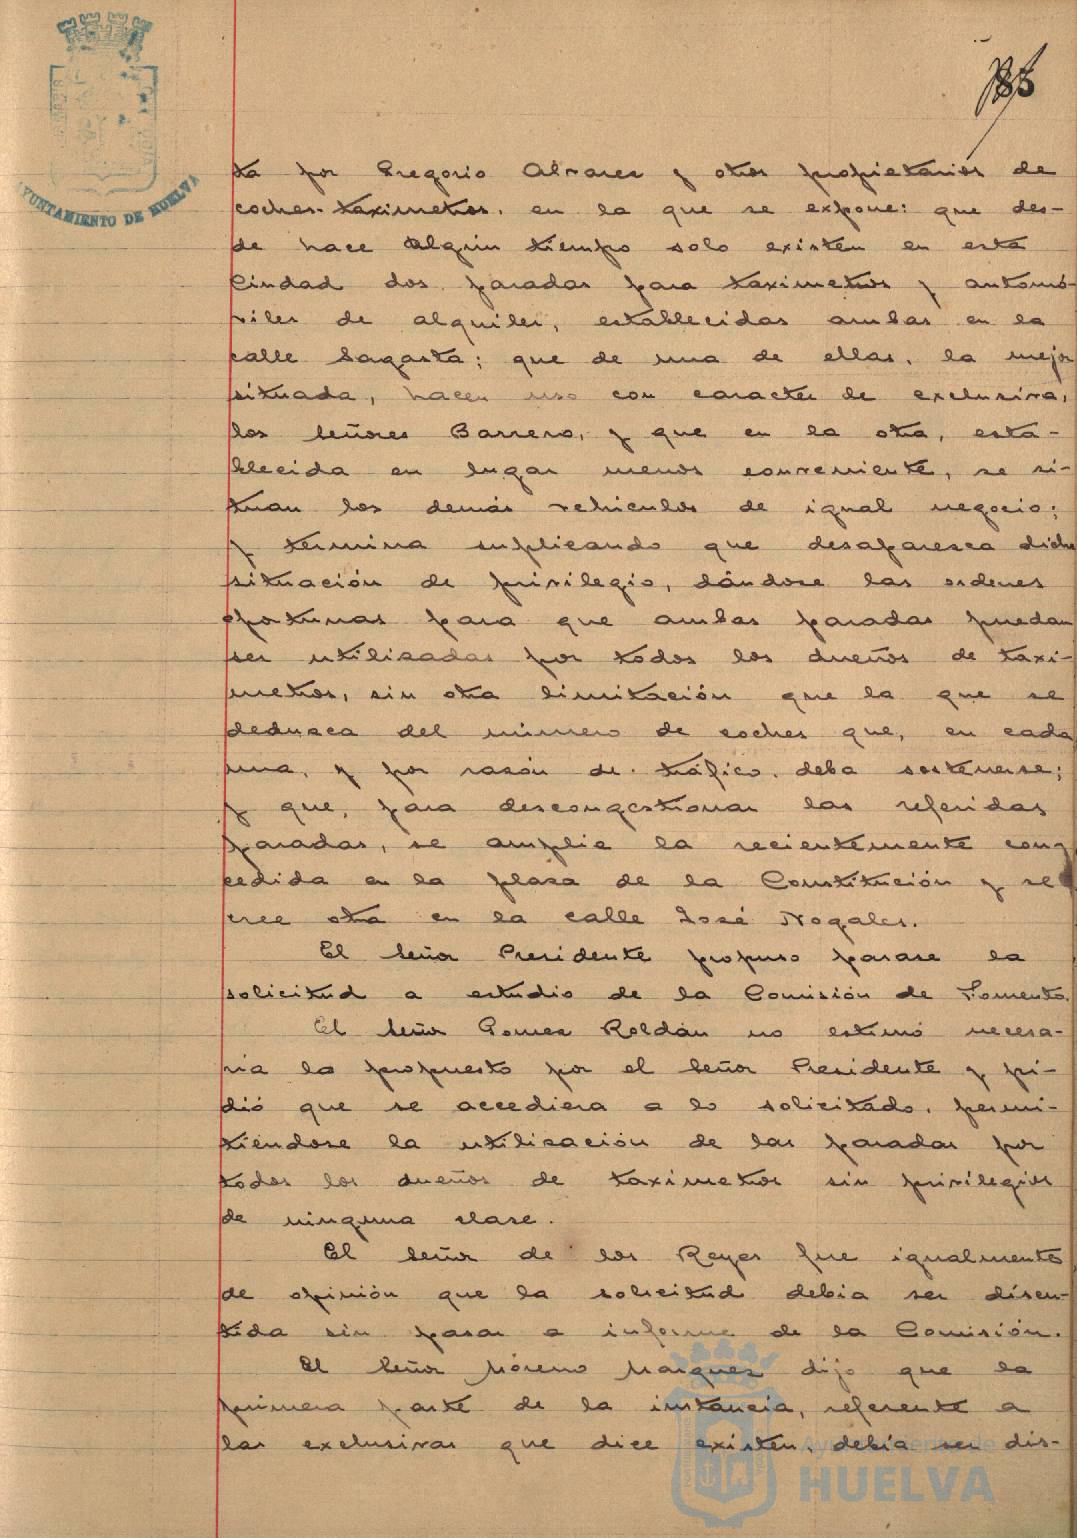 185
AYUNTAMIENTO DE HUELVA
ta por Gregorio Alvarez y otros propietarios de
coches-taximetros, en la que se expone: que des-
de hace algún tiempo solo existen en esta
Ciudad dos paradas para taximetros y automó-
viles de alquiler, establecidas ambas en la
calle Sagasta; que de una de ellas, la mejor
situada, hacen uso con caracter de exclusiva,
los Señores Barrero, y que en la otra, esta-
blecida en lugar menos conveniente, se si-
tuan los demás vehiculos de igual negocio;
y termina suplicando que desaparezca dicha
situación de privilegio, dándose las ordenes
oportunas para que ambas paradas puedan
ser utilizadas por todos los dueños de taxi-
metros, sin otra limitación que la que se
deduzca del número de coches que, en cada
una, y por razón de tráfico, deba sostenerse;
y que, para descongestionar las referidas
paradas, se amplie la recientemente con-
cedida en la plaza de la Constitución y se
cree otra en la calle José Nogales.
El Señor Presidente propuso pasase la
solicitud a estudio de la Comisión de Fomento.
El Señor Gomez Roldán no estimó necesa-
ria lo propuesto por el Señor Presidente y pi-
dió que se accediera a lo solicitado, permi-
tiéndose la utilización de las paradas por
todos los dueños de taximetros sin privilegios
de ninguna clase.
El Señor de los Reyes fue igualmente
de opinión que la solicitud debia ser discu-
tida sin pasar a informe de la Comisión.
El Señor Moreno Marquez dijo que la
primera parte de la instancia, referente a
las exclusivas que dice existen, debia ser dis-
Ayuntamiento de
HUELVA